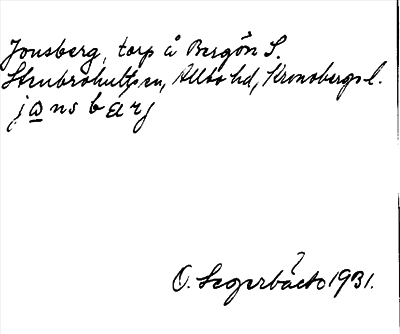 Jonsberg, torp å Bergön S.
Stenbrohults sn, Allbo hd, Kronobergs l.
jɷnsbærj
O. Segerbäck 1931.